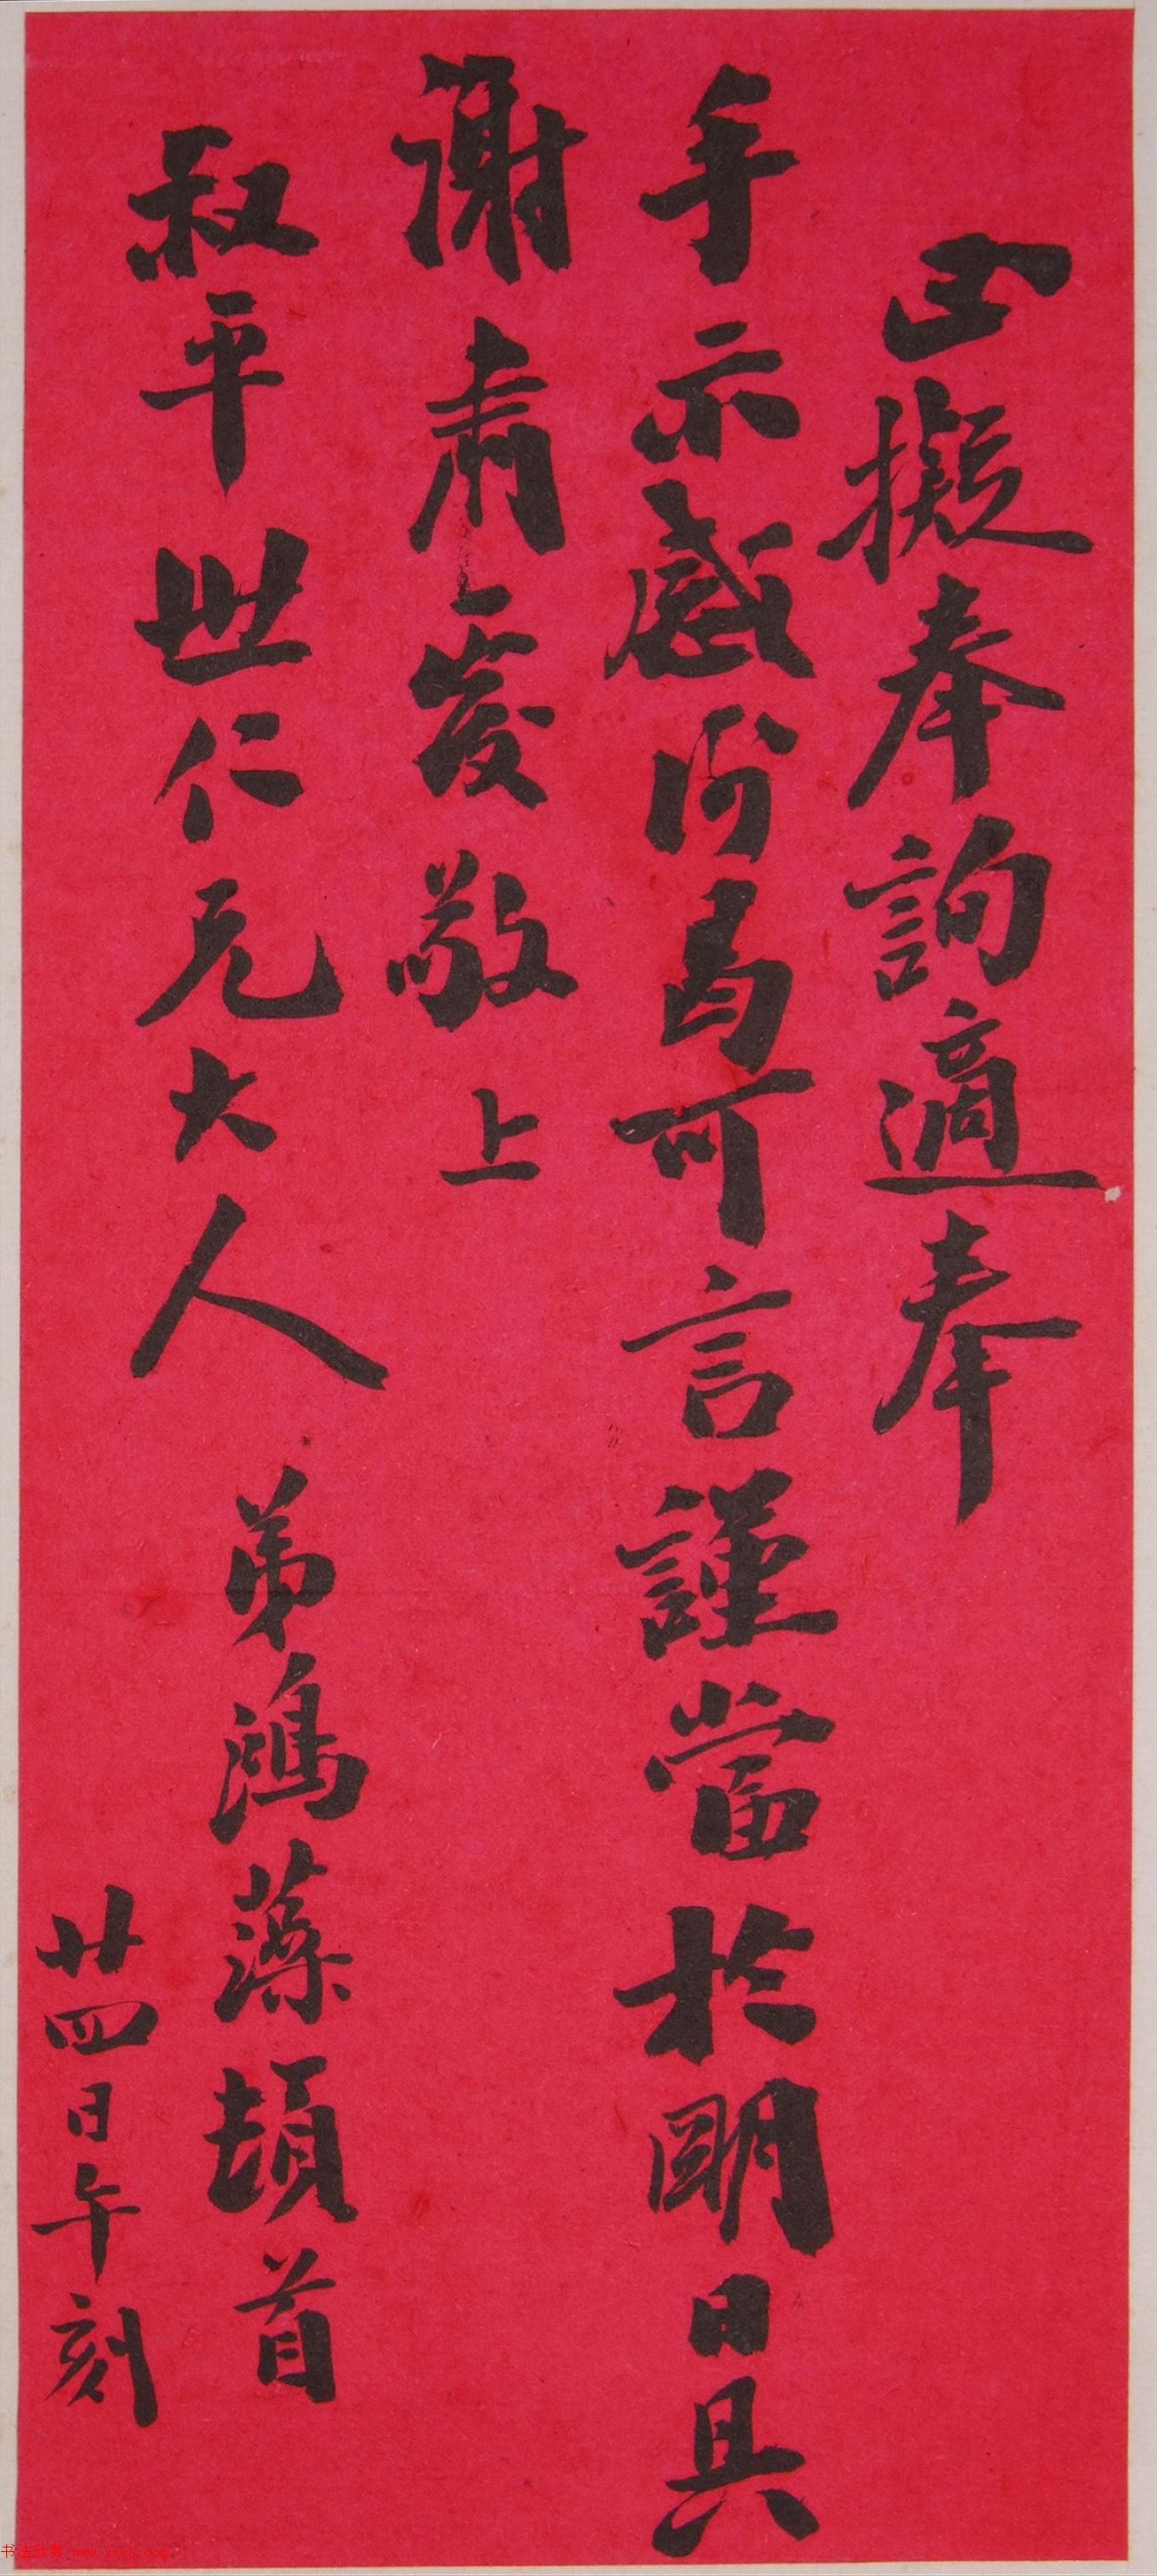 正擬奉詢適奉
手示感何可言謹當於明日具
謝肅覆敬上
叔平世仁兄大人
弟鴻藻頓首
廿四日午刻